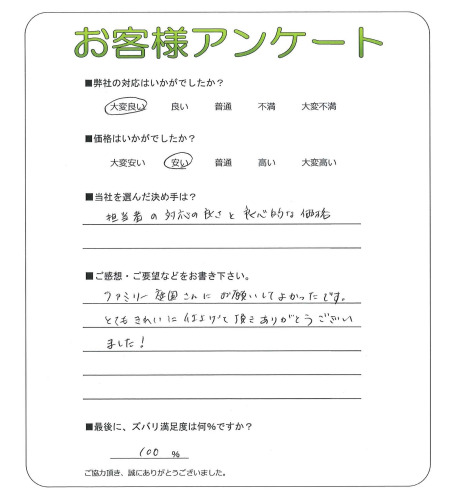 お客様アンケート
■弊社の対応はいかがでしたか？
大変良い　良い　普通　不満　大変不満
■価格はいかがでしたか？
大変安い　安い　普通　高い　大変高い
■当社を選んだ決め手は？
担当者の対応の良さと良心的な価格
■ご感想・ご要望などをお書き下さい。
ファミリー庭園さんにお願いしてよかったです。
とてもきれいに仕上げて頂きありがとうござい
ました！
■最後に、ズバリ満足度は何%ですか？
100 %
ご協力頂き、誠にありがとうございました。